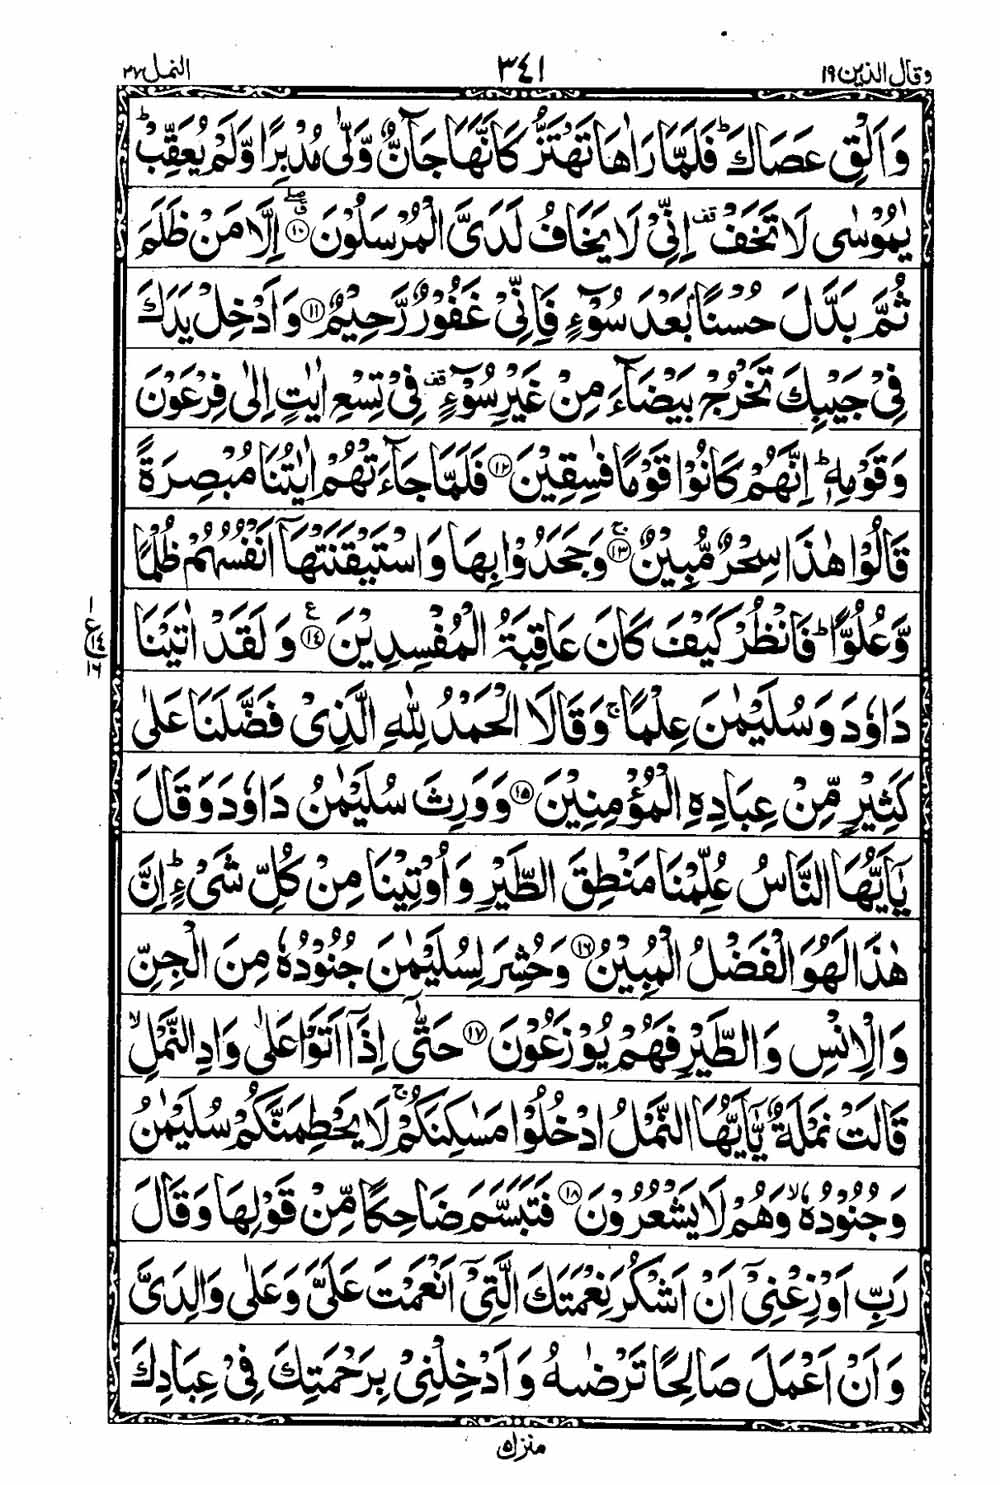 وقال الذين ١٩
٣٤١
النمل ٢٧
وَاَلْقِ عَصَاكَ ؕ فَلَمَّا رَاٰهَا تَهْتَزُّ كَاَنَّهَا جَآنٌّ وَّلّٰى مُدْبِرًا وَّلَمْ يُعَقِّبْ ؕ
يٰمُوْسٰى لَا تَخَفْ قف اِنِّىْ لَا يَخَافُ لَدَىَّ الْمُرْسَلُوْنَ ۖق ﴿١٠﴾ اِلَّا مَنْ ظَلَمَ
ثُمَّ بَدَّلَ حُسْنًۢا بَعْدَ سُوْٓءٍ فَاِنِّىْ غَفُوْرٌ رَّحِيْمٌ ﴿١١﴾ وَاَدْخِلْ يَدَكَ
فِىْ جَيْبِكَ تَخْرُجْ بَيْضَآءَ مِنْ غَيْرِ سُوْٓءٍ قف فِىْ تِسْعِ اٰيٰتٍ اِلٰى فِرْعَوْنَ
وَقَوْمِهٖ ؕ اِنَّهُمْ كَانُوْا قَوْمًا فٰسِقِيْنَ ﴿١٢﴾ فَلَمَّا جَآءَتْهُمْ اٰيٰتُنَا مُبْصِرَةً
قَالُوْا هٰذَا سِحْرٌ مُّبِيْنٌ ۚ ﴿١٣﴾ وَجَحَدُوْا بِهَا وَاسْتَيْقَنَتْهَاۤ اَنْفُسُهُمْ ظُلْمًا
وَّعُلُوًّا ؕ فَانْظُرْ كَيْفَ كَانَ عَاقِبَةُ الْمُفْسِدِيْنَ ع ﴿١٤﴾ وَلَقَدْ اٰتَيْنَا
دَاوٗدَ وَسُلَيْمٰنَ عِلْمًا ۚ وَقَالَا الْحَمْدُ لِلّٰهِ الَّذِىْ فَضَّلَنَا عَلٰى
كَثِيْرٍ مِّنْ عِبَادِهِ الْمُؤْمِنِيْنَ ﴿١٥﴾ وَوَرِثَ سُلَيْمٰنُ دَاوٗدَ وَقَالَ
يٰۤاَيُّهَا النَّاسُ عُلِّمْنَا مَنْطِقَ الطَّيْرِ وَاُوْتِيْنَا مِنْ كُلِّ شَىْءٍ ؕ اِنَّ
هٰذَا لَهُوَ الْفَضْلُ الْمُبِيْنُ ﴿١٦﴾ وَحُشِرَ لِسُلَيْمٰنَ جُنُوْدُهٗ مِنَ الْجِنِّ
وَالْاِنْسِ وَالطَّيْرِ فَهُمْ يُوْزَعُوْنَ ﴿١٧﴾ حَتّٰٓى اِذَاۤ اَتَوْا عَلٰى وَادِ النَّمْلِ ۙ
قَالَتْ نَمْلَةٌ يّٰۤاَيُّهَا النَّمْلُ ادْخُلُوْا مَسٰكِنَكُمْ ۚ لَا يَحْطِمَنَّكُمْ سُلَيْمٰنُ
وَجُنُوْدُهٗ ۙ وَهُمْ لَا يَشْعُرُوْنَ ﴿١٨﴾ فَتَبَسَّمَ ضَاحِكًا مِّنْ قَوْلِهَا وَقَالَ
رَبِّ اَوْزِعْنِىْۤ اَنْ اَشْكُرَ نِعْمَتَكَ الَّتِىْۤ اَنْعَمْتَ عَلَىَّ وَعَلٰى وَالِدَىَّ
وَاَنْ اَعْمَلَ صَالِحًا تَرْضٰىهُ وَاَدْخِلْنِىْ بِرَحْمَتِكَ فِىْ عِبَادِكَ
منزل ٥